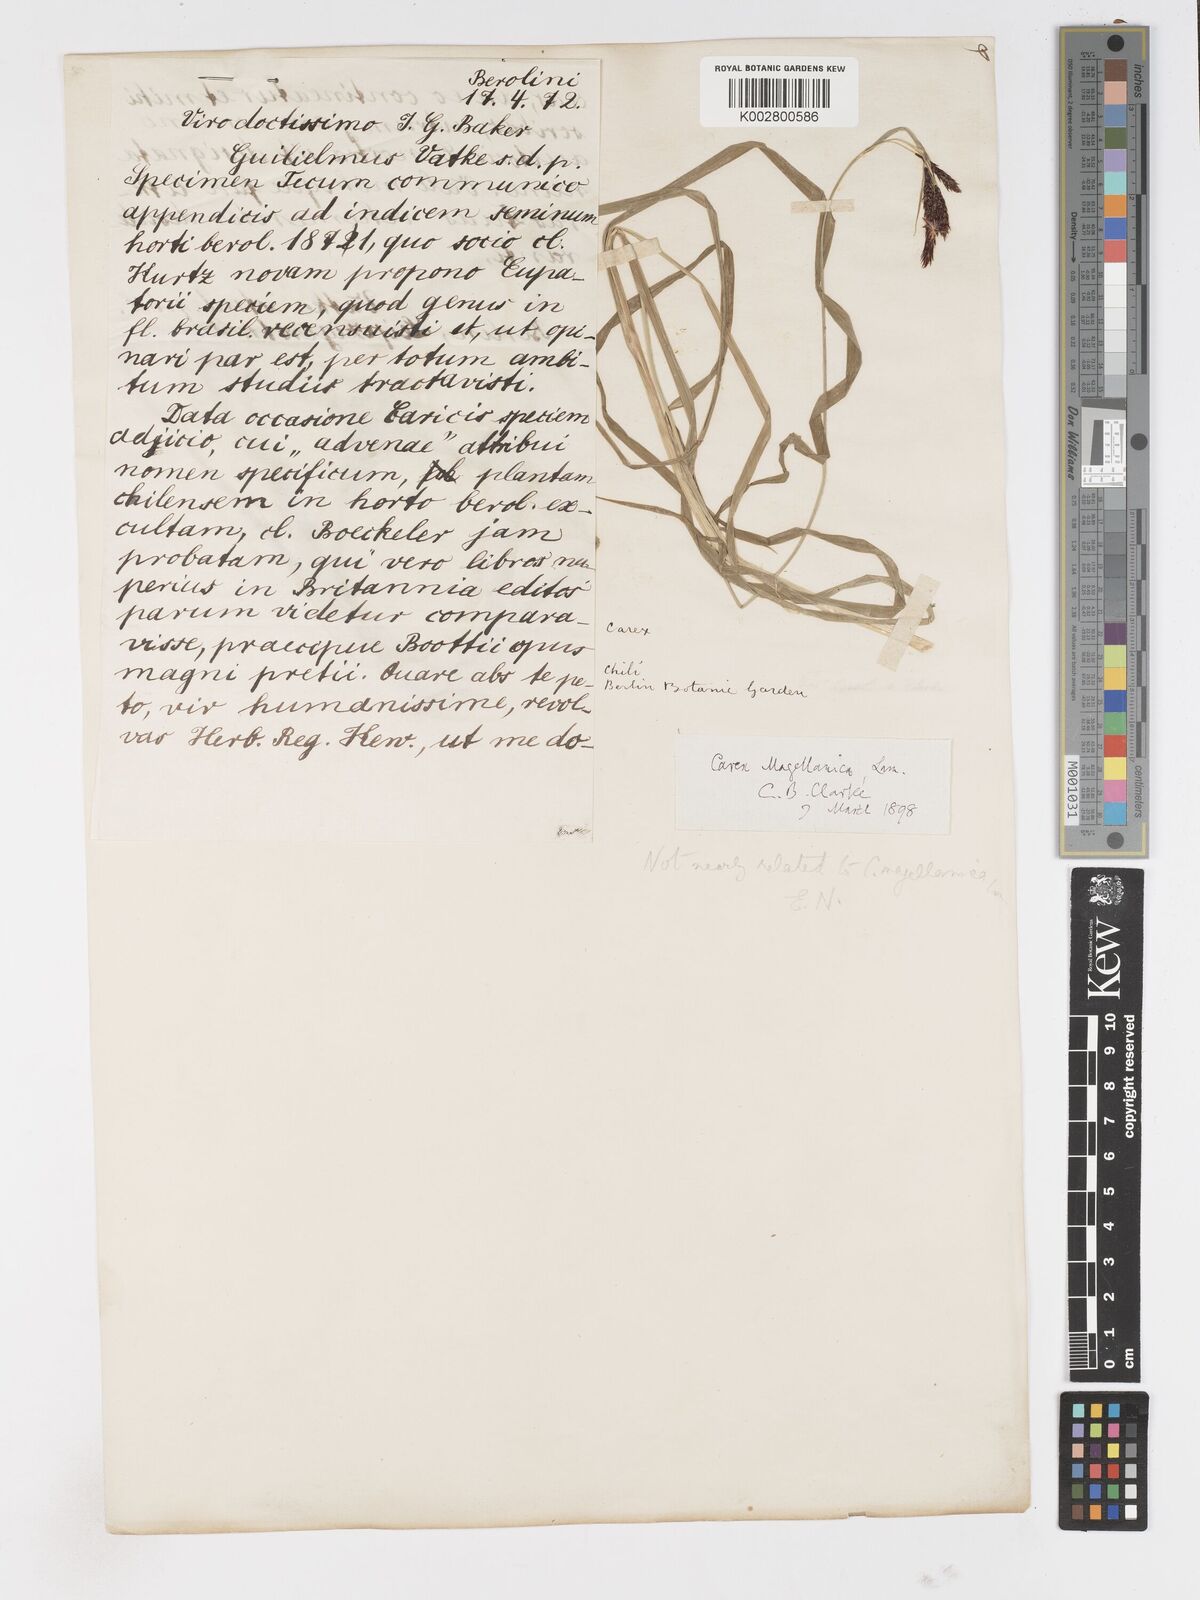 Berolini
17. 4. 72.
Viro doctissimo J. G. Baker
Guilielmus Vatke s. d. p.
Specimen Tecum communico
appendicis ad indicem seminum
horti berol. 1871, quo socio cl.
Kurtz novam propono Eupa-
torii speciem, quod genus in
fl. brasil. recensuisti et, ut opi-
nari par est, per totum ambi-
tum studiis tractavisti.
Data occasione Caricis speciem
adjicio, cui „advenae" attribui
nomen specificum, plantam
chilensem in horto berol. ex-
cultam, cl. Boeckeler jam
probatam, qui vero libros nu-
perius in Britannia editos
parum videtur compara-
visse, praecipue Boottii opus
magni pretii. Quare abs te pe-
to, vir humanissime, revol-
vas Herb. Reg. Kew., ut me do-
ROYAL BOTANIC GARDENS KEW
K002800586
Carex
Chili
Berlin Botanic Garden
Carex Magellanica, Lam.
C. B. Clarke
9 March 1898
Not nearly related to C. magellanica Lam
E. N.
inches
centimetres
Don Williams
M001031
Royal Botanic Gardens
Kew
copyright reserved
0 1 2 3 4 5 6 7 8 9 10
cm